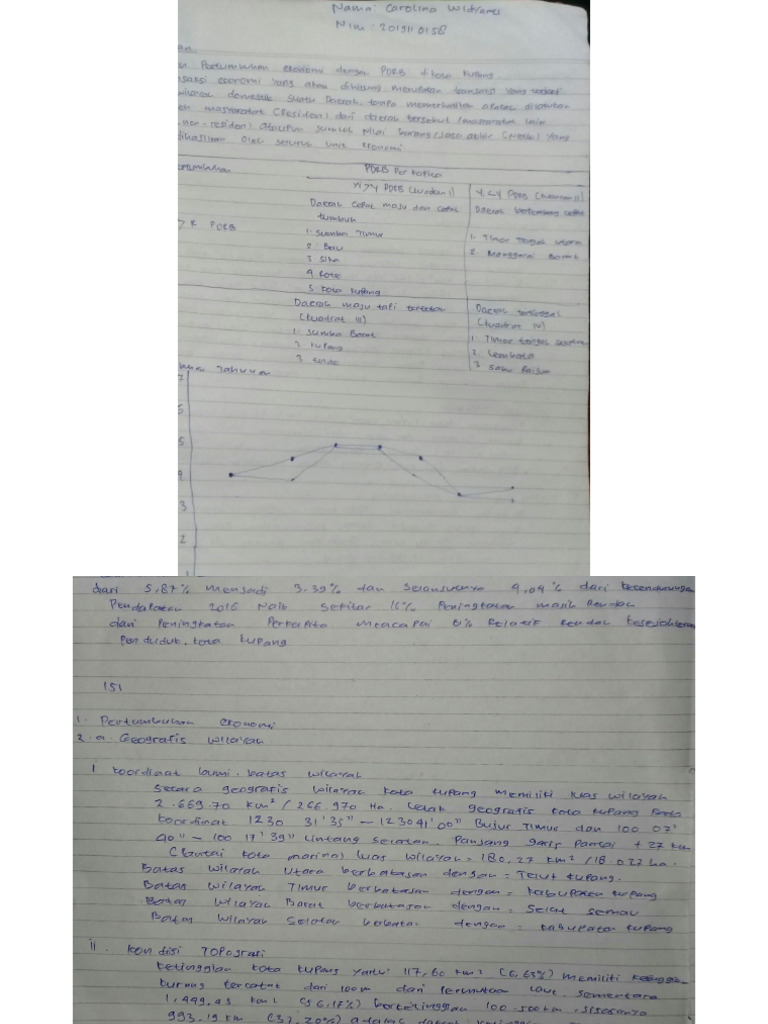 Nama: Carolino Widramei
Nim: 2019110158
Pertumbuhan ekonomi dengan PDRB di kota Kupang.
ekonomi yang akan dihitung merupakan transaksi yang terjadi
domestik suatu Daerah tanpa memerhatikan apakah dilakukan
masyarakat (Residen) dari daerah tersebut / masyarakat lain
non-residen) ataupun sumua Nilai barang/jasa akhir (Netto) yang
dihasilkan oleh seluruh unit ekonomi
PDRB Per kapita
yi > y PDRB (kuadran I)
yi < y PDRB (kuadran II)
Daerah cepat maju dan cepat
tumbuh
1. Sumba Timur
2. Belu
3 Sika
4 Rote
5 Kota Kupang
Daerah berkembang cepat
1. Timor Tengah utara
2. Manggarai Barat
> R PDRB
Daerah maju tapi tertekan
(kuadrat III)
1. Sumba Barat
2. Kupang
3. Ende
Daerah tertinggal
(kuadrat IV)
1. Timor tengah selatan
2. Lembata
3 Sabu Raijua
Tahunan
7
5
5
3
2
dari 5,87% menjadi 3,39% dan selanjutnya 4,04% dari kecenderungan
Pendapatan 2016 Naik sekitar 16% Peningkatan masih Rendah
dari Peningkatan Perkapita mencapai 8% Relatif Rendah kesejahteraan
Penduduk, kota Kupang
151
1. Pertumbuhan ekonomi
2. a. Geografis wilayah
I koordinat bumi, batas wilayah
Secara geografis wilayah kota Kupang memiliki luas wilayah
2.669.70 km² / 266.970 Ha. Letak geografis kota Kupang Pada
koordinat 1230 31'35" – 123041'00" Bujur Timur dan 100 07'
40" – 100 17'39" Lintang selatan. Panjang garis Pantai + 27 km
luas wilayah = 180,27 km² / 18.027 ha.
Batas wilayah utara berbatasan dengan = Teluk Kupang.
Batas wilayah Timur berbatasan dengan = Kabupaten Kupang
Batas wilayah Barat berbatasan dengan = Selat Semau
Batas wilayah Selatan berbatas dengan = Kabupaten Kupang
ii. kondisi Topografi
ketinggian kota Kupang yaitu 117,60 km² (6,63%) memiliki
kurang tercatat dari 100m dari permukaan laut. sementara
1,499,45 km² (56,17%) berketinggian 100-500m, sisasanya
993.19 km (37,20%) adalah daerah